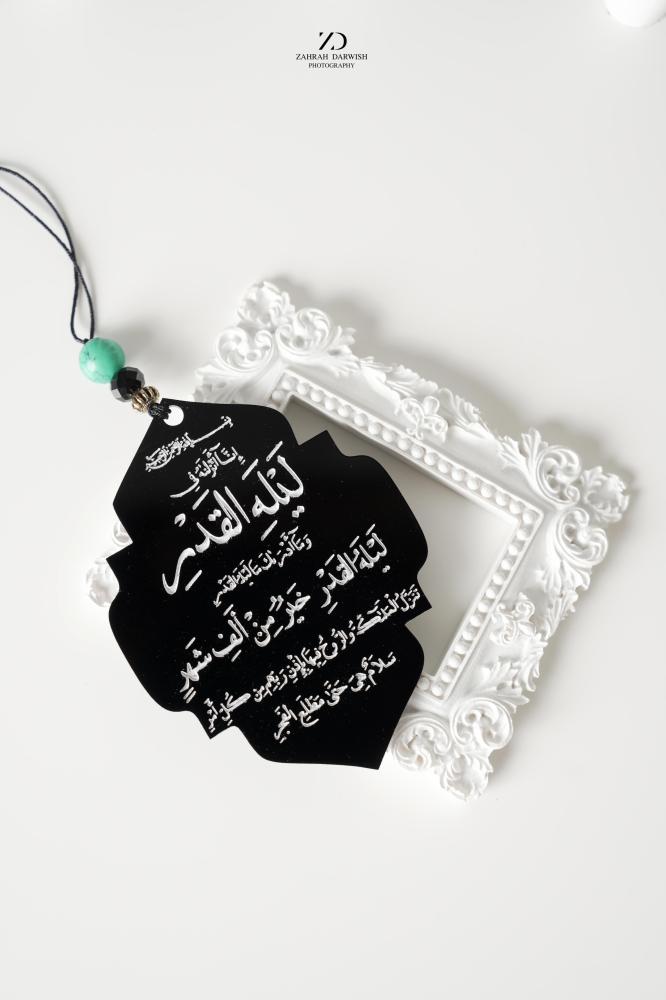 ZD
ZAHRAH DARWISH
PHOTOGRAPHY
بسم الله الرحمن الرحيم
إِنَّا أَنْزَلْنَاهُ فِي
لَيْلَةِ الْقَدْرِ
وَمَا أَدْرَاكَ مَا لَيْلَةُ الْقَدْرِ
لَيْلَةُ الْقَدْرِ خَيْرٌ مِنْ أَلْفِ شَهْرٍ
تَنَزَّلُ الْمَلَائِكَةُ وَالرُّوحُ فِيهَا بِإِذْنِ رَبِّهِم مِن كُلِّ أَمْرٍ
سَلَامٌ هِيَ حَتَّى مَطْلَعِ الْفَجْرِ